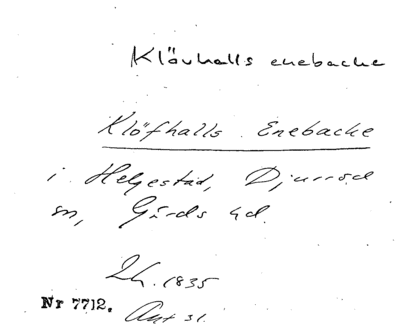 Klövhalls enebacke
Klöfhalls Enebacke
i Helgestad, Djurröd
sn, Gärds hd.
Lh. 1835
Nr 7712.
Ant 31.